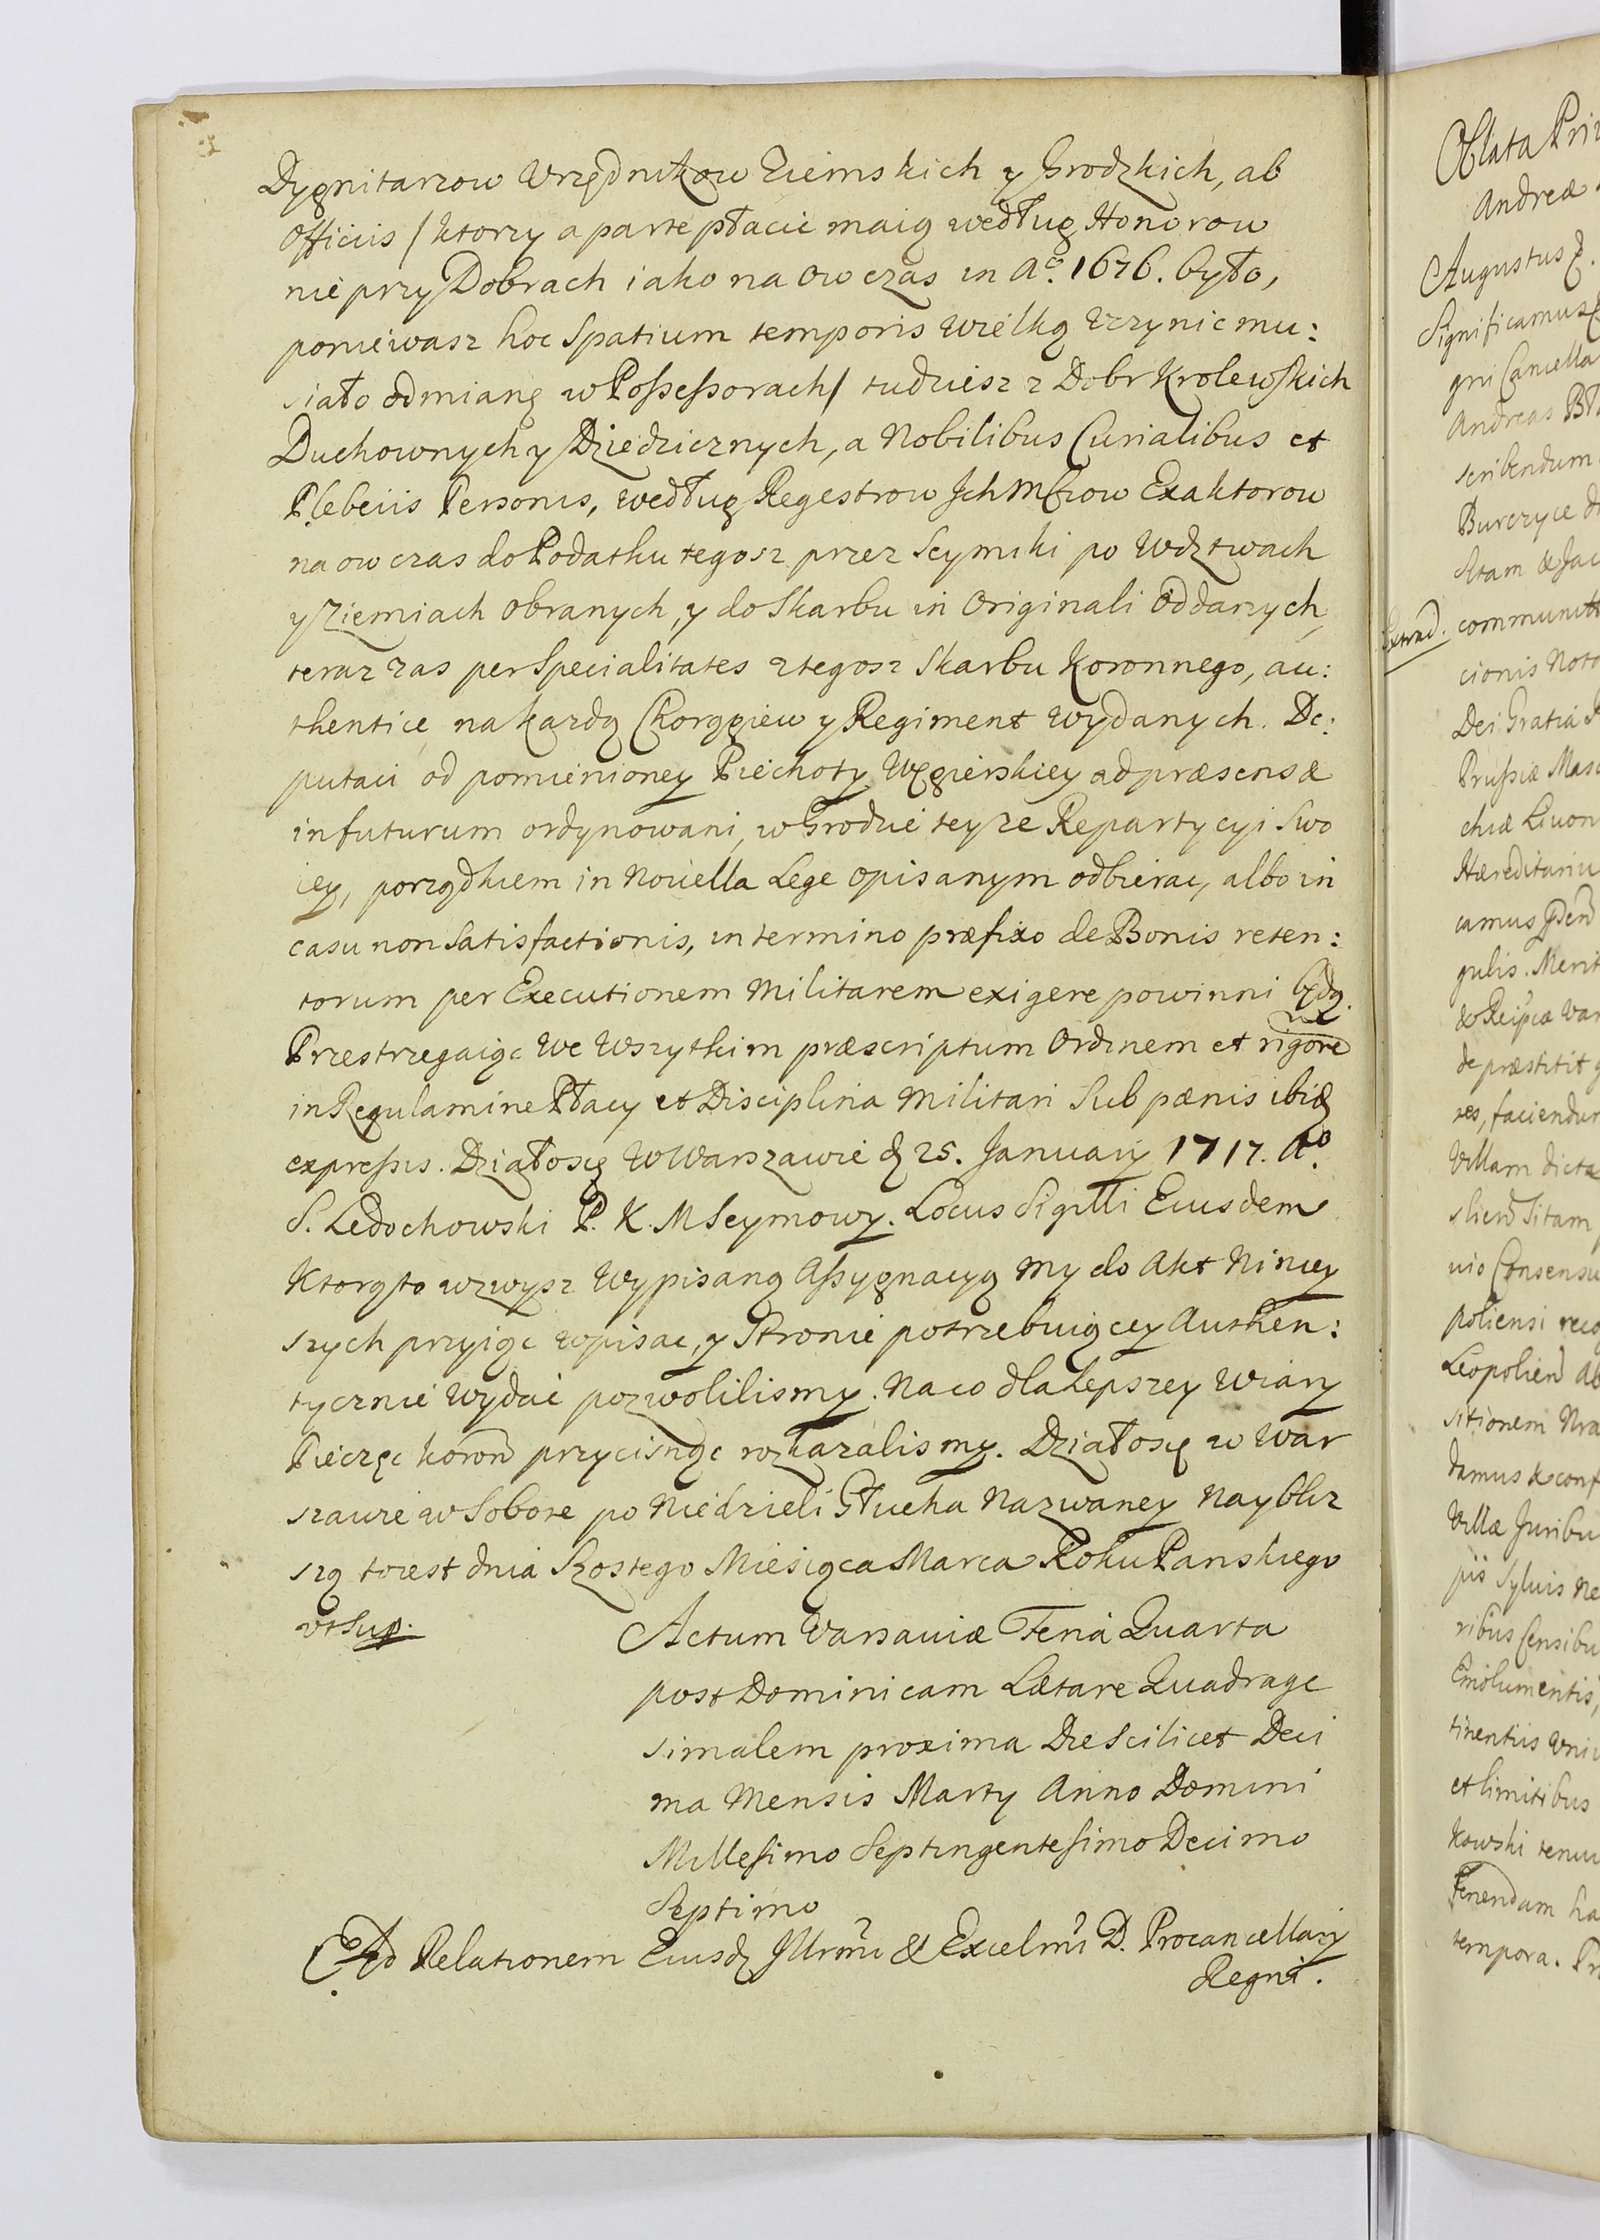 Dygnitarzow Urzędnikow Ziemskich y Grodzkich, ab
Officiis / ktorzy aparte płacić maią według Honorow
nie przy Dobrach iako na ow czas in Aō. 1676. było,
poniewasz hoc Spatium temporis wielką uczynic mu:
siało odmianę w Possessorach/ tudziesz z Dobr Krolewskich
Duchownych y Dziedzicznych, a Nobilibus Curialibus et
Plebeiis Personis, według Regestrow Ich Mściow Exaktorow
na ow czas do Podatku tegosz przez Seymiki po Wdztwach
y Ziemiach obranych, y do Skarbu in Originali oddanych,
teraz zas per Specialitates z tegosz Skarbu Koronnego, au:
thentice na kazdą Chorągiew y Regiment wydanych. De:
putaci od pomienioney Piechoty Węgierskiey ad præsens æ
in futurum ordynowani, w Grodzie teyze Repartycyi Swo
iey, porządkiem in Novella Lege opisanym odbierac, albo in
casu non Satisfactionis, in termino præfixo de Bonis reten:
torum per Executionem Militarem exigere powinni będą.
Przestrzegaiąc we wszytkim præscriptum Ordinem et rigore
in Regulamine Płacy et Disciplina Militari Sub pænis ibiđ
expressis. Działo się w Warszawie đ 25. January 1717. Aō.
S. Ledochowski P. K. M Seymowy. Locus Sigilli Eiusdem
Ktorą to wzwysz Wypisaną Assygnacyą my do Akt Niniey
szych przyiąc wpisac, y Stronie potrzebuiącey Authen:
tycznie wydac pozwolilismy. Na co dla lepszey wiary
Pieczęc koroñ przycisnąc rozkazalismy. Działo się w War
szawie w Sobote po Niedzieli Głucha Nazwaney Naybliz
szą to iest dnia Szostego Miesiąca Marca Roku Panskiego
ut Sup.
Actum Varsaviæ Feria Quarta
post Dominicam Lætare Quadrage
simalem proxima Die Scilicet Deci
ma Mensis Marty Anno Domini
Millesimo Septingentesimo Decimo
Septimo
Ad Relationem Eiusđ Illrmi & Excelmi D. Procancellary
Regni.
Oblata Pri
Andreæ
Augustus
Significamus
gni Cancella
Andreas
scribendum
Burczyce
communit
Extrad.
cionis Nota
Dei Gratia
Prussiæ Maso
chiæ Livon
Hæreditariu
camus
gulis. Merit
de præstitit
res, faciendu
Villam dicta
Sitam
uio Consensu
poliensi reco
Leopolien
sitionem Nra
damus & conf
Villæ Juribu
pis Sylvis Ne
ribus Censibu
Emolumentis,
tinentiis Vni
et limitibus
kowski tenui
Tenendam ha
tempora.